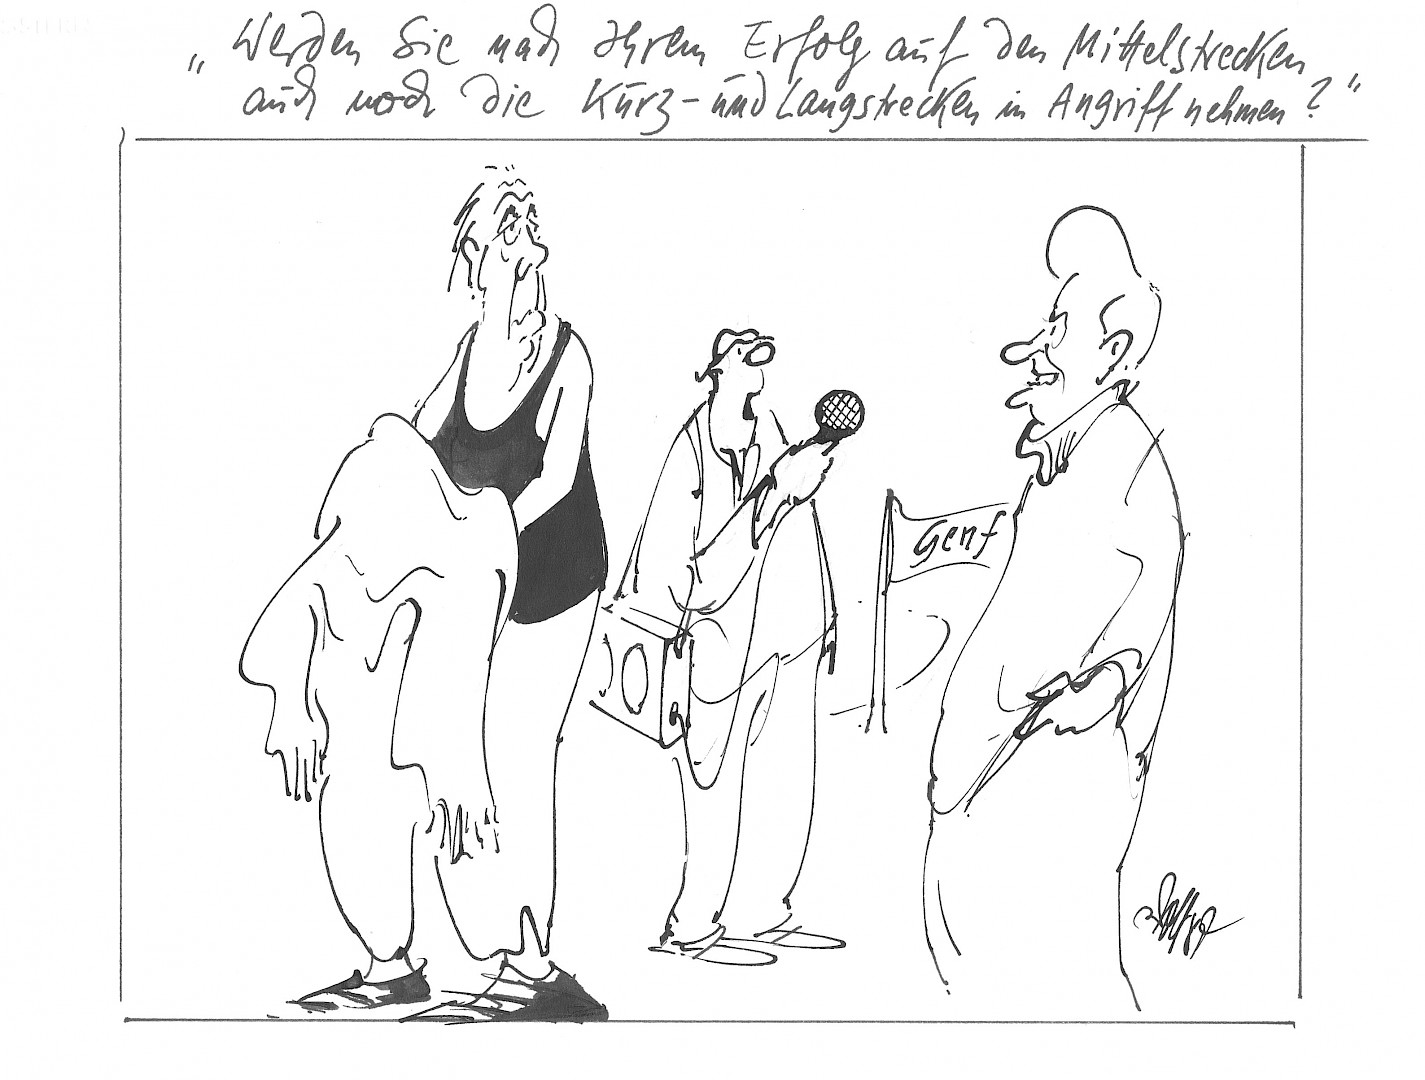 „Werden Sie nach Ihrem Erfolg auf den Mittelstrecken
auch noch die Kurz- und Langstrecken in Angriff nehmen?“
Genf